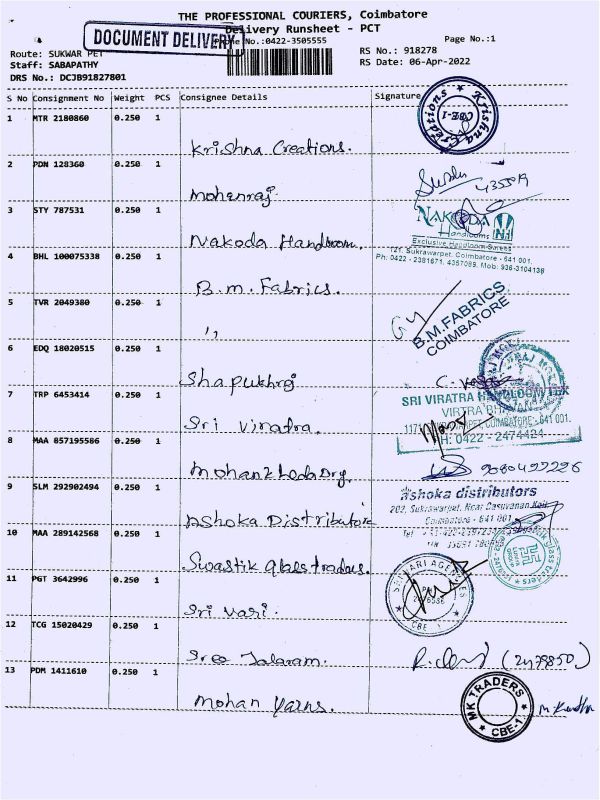 THE PROFESSIONAL COURIERS, Coimbatore
Delivery Runsheet - PCT
DOCUMENT DELIVERY
Phone No.:0422-3505555
Page No.:1
Route: SUKWAR PET
RS No.: 918278
Staff: SABAPATHY
RS Date: 06-Apr-2022
DRS No.: DCJB91827801
S No Consignment No Weight PCS Consignee Details Signature
1 MTR 2180860 0.250 1
Krishna Creations.
Krishna Creations
CBE-1
2 PDN 128360 0.250 1
mohanraj
3 STY 787531 0.250 1
Nakoda Handloom.
NAKODA
Handlooms
Exclusive Handloom Sarees
121, Sukrawarpet, Coimbatore - 641 001.
Ph: 0422 - 2381671, 4357089, Mob: 936-3104138
4 BHL 100075338 0.250 1
B.m. Fabrics.
5 TVR 2049380 0.250 1
,,
B.M.FABRICS
COIMBATORE
6 EDQ 18020515 0.250 1
Shapukhraj
7 TRP 6453414 0.250 1
Sri Viratra.
SRI VIRATRA HANDLOOM TEX
VIRTRA BHAVAN
COIMBATORE - 641 001.
PH: 0422 - 2474424
8 MAA 857195586 0.250 1
9 SLM 292902494 0.250 1
Ashoka Distributors
Ashoka distributors
Coimbatore - 641 001
10 MAA 289142568 0.250 1
Swastik glass traders.
11 PGT 3642996 0.250 1
Sri Hari.
SRI HARI AGENCIES
CBE - 1
12 TCG 15020429 0.250 1
Sree Jalaram.
13 PDM 1411610 0.250 1
mohan yarns.
MK TRADERS
CBE-1